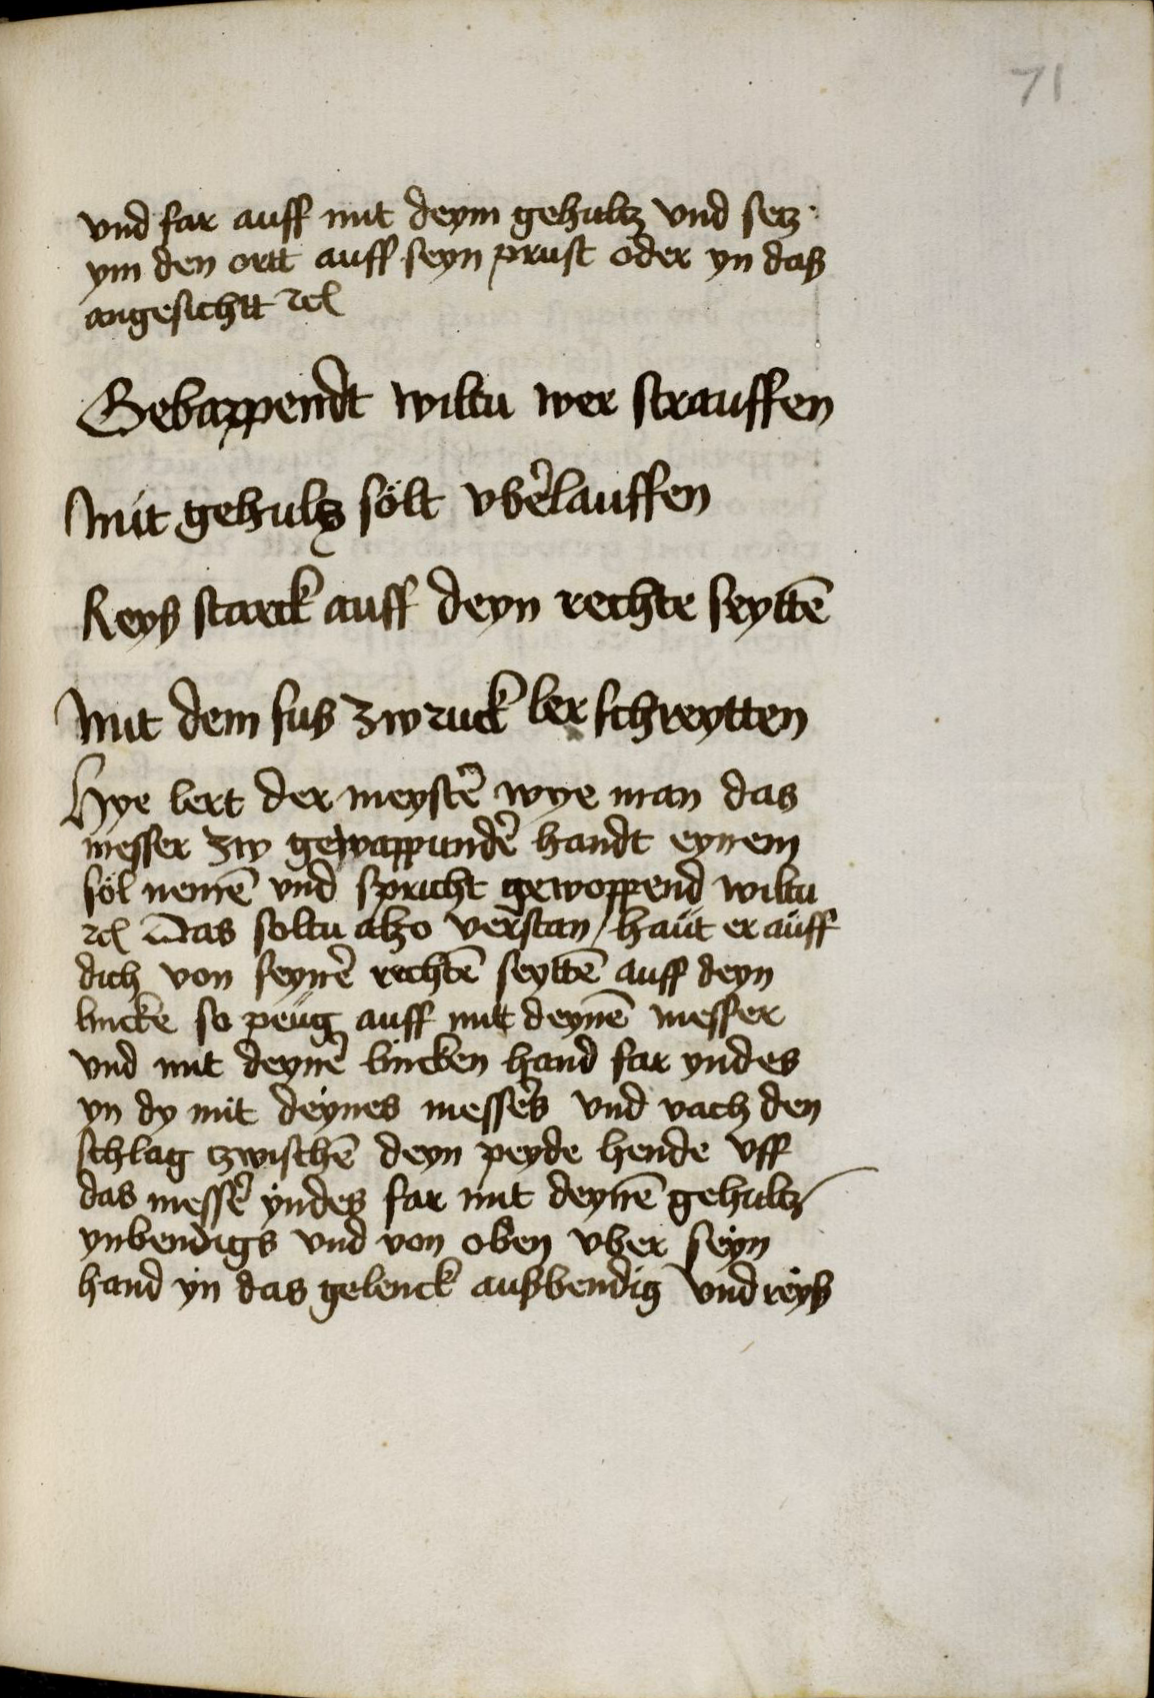 71
vnd far auff mit deym gehultz vnd setz
ym den ortt auff seyn prust oder yn daß
angesichtt ꝛcͦ
Gebappendt wiltu wer strauffen
Mit gehultz sölt vber̄lauffen
Reyß starck auff deyn rechte seyttē
Mit dem fus zw ruck ler schreytten
Hye lert der meystē wye man das
messer zw gewappundē handt eynem
söl nemē vnd spricht gewoppend wiltu
ꝛcͦ Das soltu alzo verstan / haüt er aüff
dich von seynē rechtē seyttē auff deyn
lincke so peüg auff mit deynē messer
vnd mit deynē lincken hand far yndes
yn dy mit deynes messers vnd vach den
schlag zwischē deyn peyde hende vff
das messē yndes far mit deynē gehultz
ynbendigs vnd von oben vber seyn
hand yn das gelenck außbendig vnd reyß